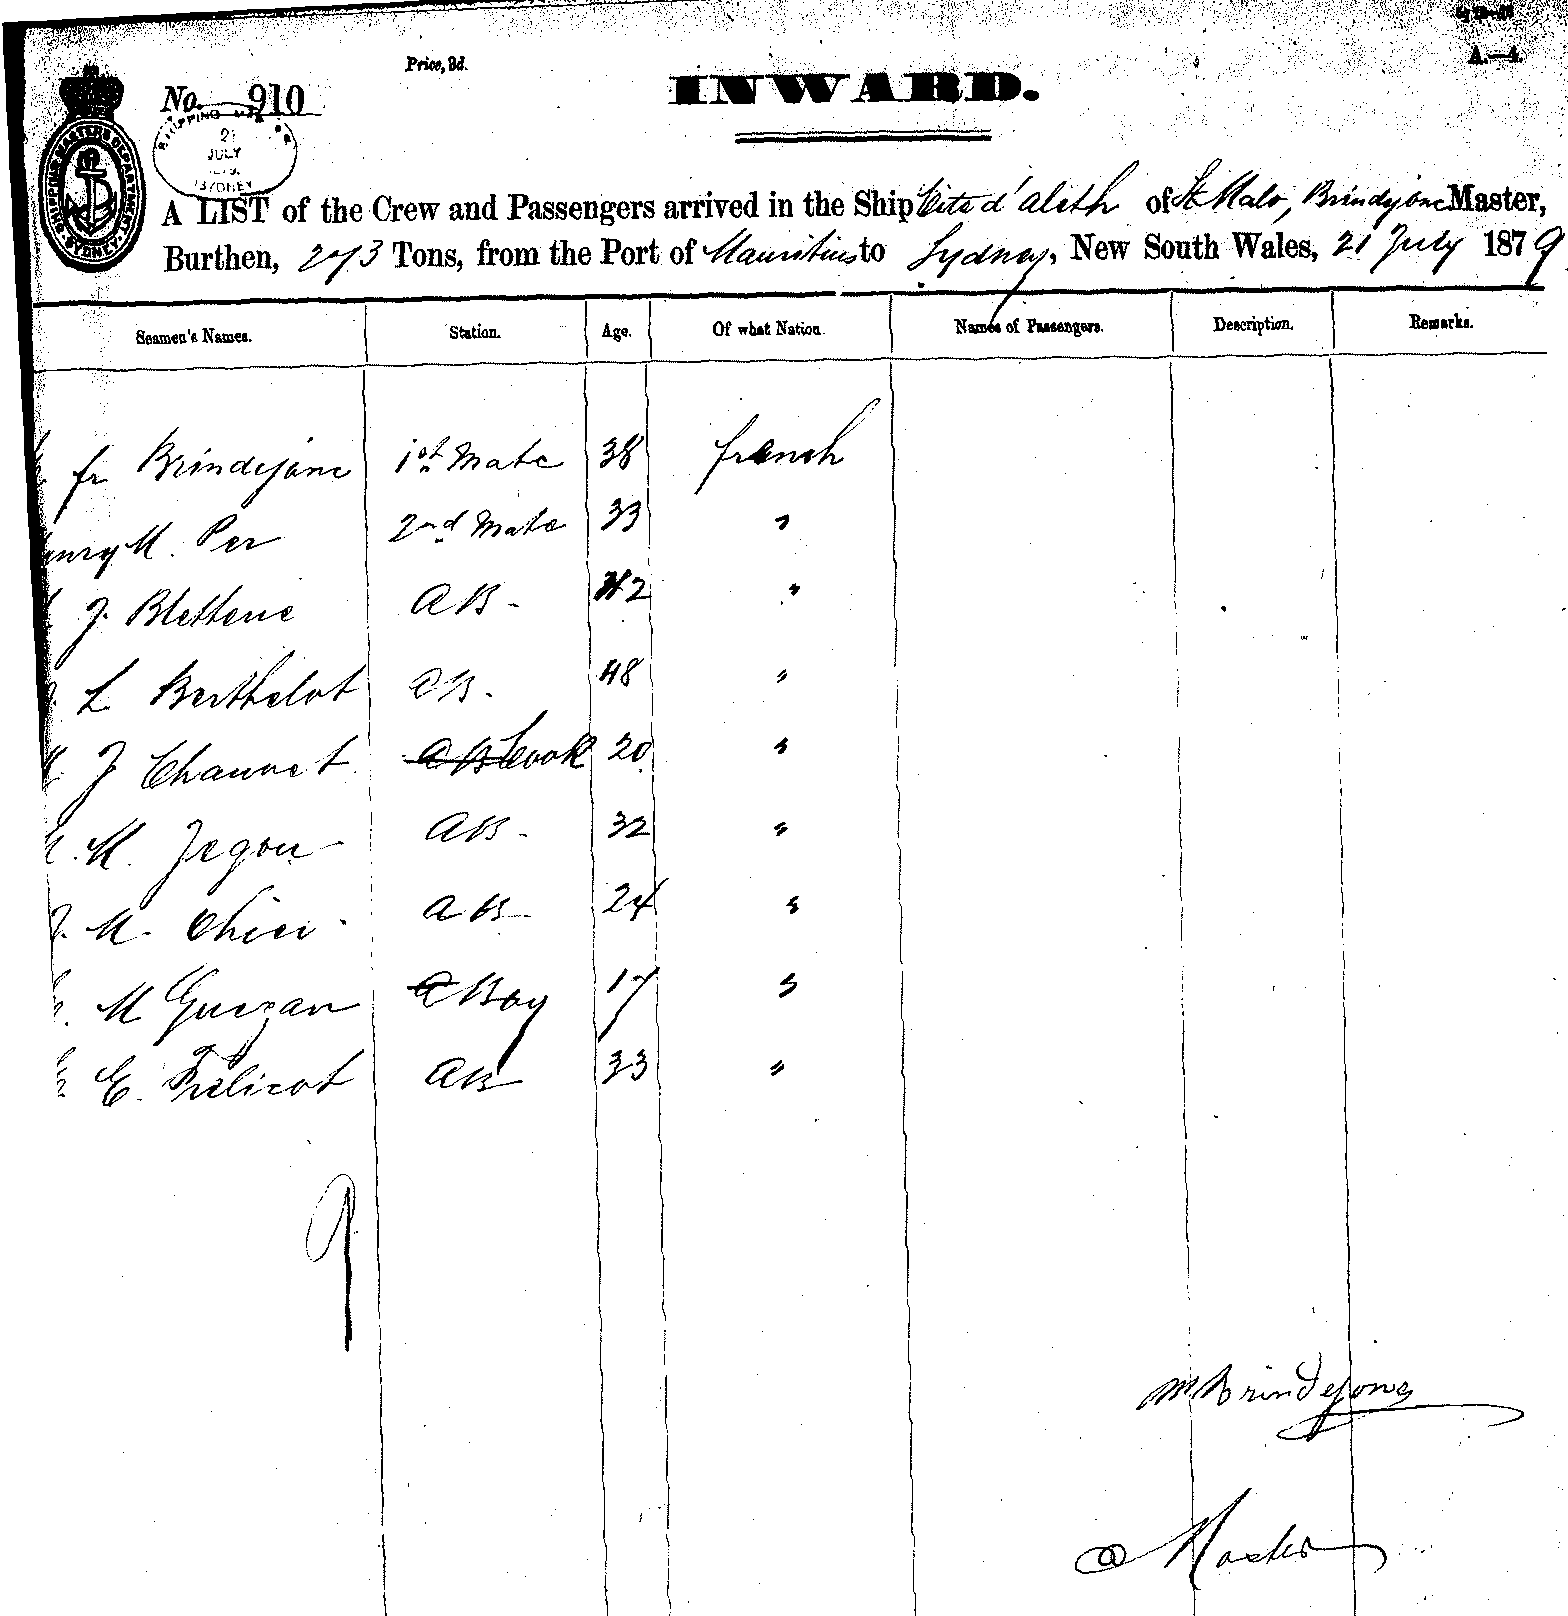 Price, 3d.
A.—4.
No. 910
INWARD.
SHIPPING
21
JULY
SYDNEY
SHIPPING MASTERS DEPARTMENT N.S.WALES
A LIST of the Crew and Passengers arrived in the Ship Cite d'Aleth of St Malo, Brindejonc Master,
Burthen, 273 Tons, from the Port of Mauritius to Sydney, New South Wales, 21 July 1879
Seamen's Names. Station. Age. Of what Nation. Names of Passengers. Description. Remarks.
fr Brindejonc 1st Mate 38 french
M. Per 2nd Mate 33 "
J. Blettene AB. 42 "
L Berthelot AB. 48 "
J Chauvet AB Cook 20 "
M. Jegou AB. 32 "
M. AB 24 "
M Guezan A Boy 17 "
E. Felicot AB 33 "
9
M Brindejonc
Master